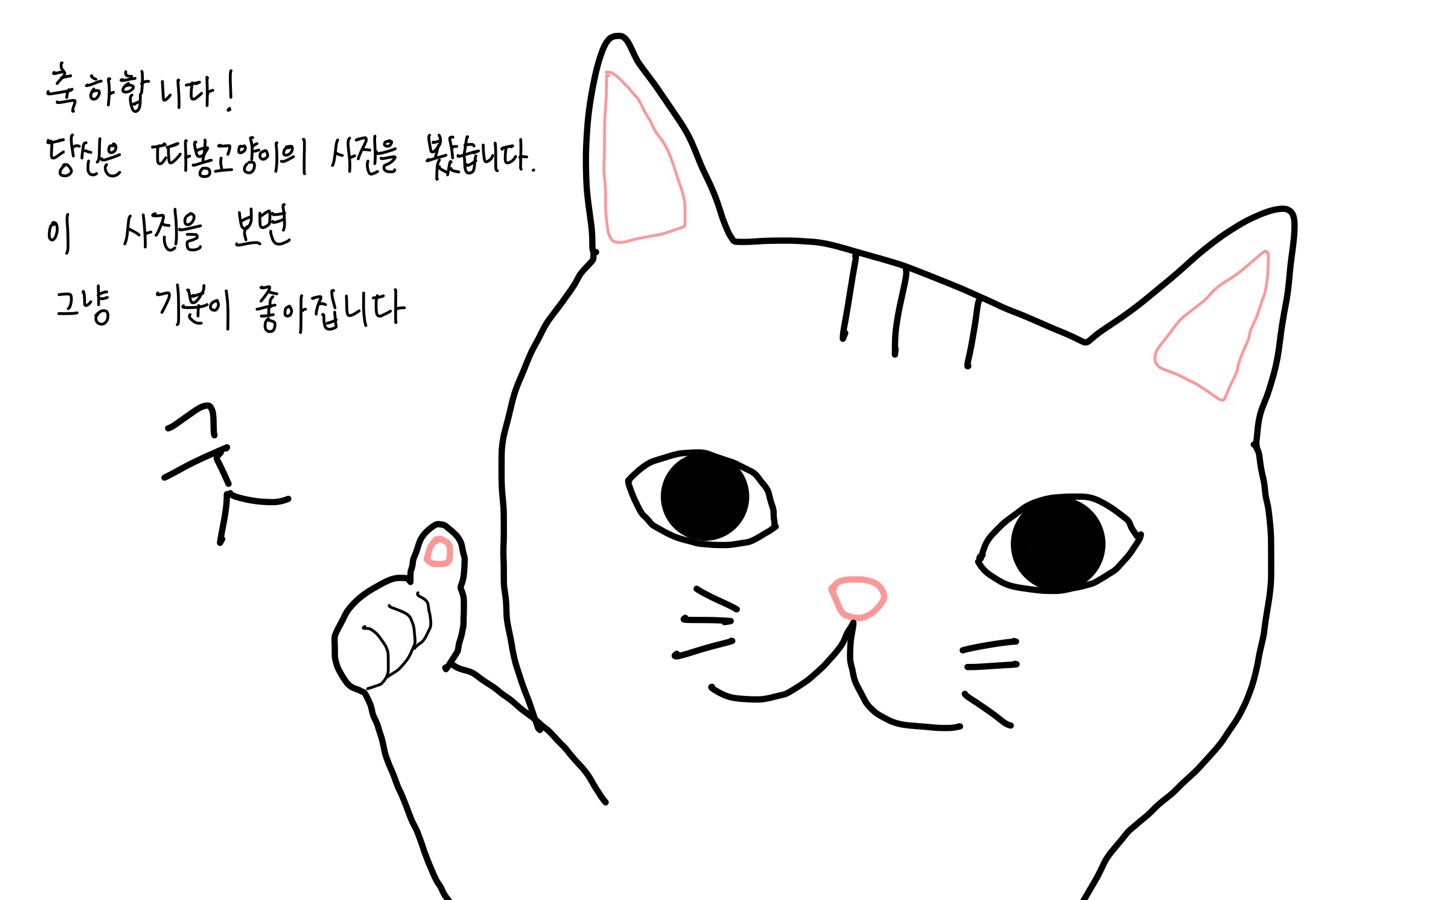 축하합니다!
당신은 따봉고양이의 사진을 봤습니다.
이 사진을 보면
그냥 기분이 좋아집니다
굿